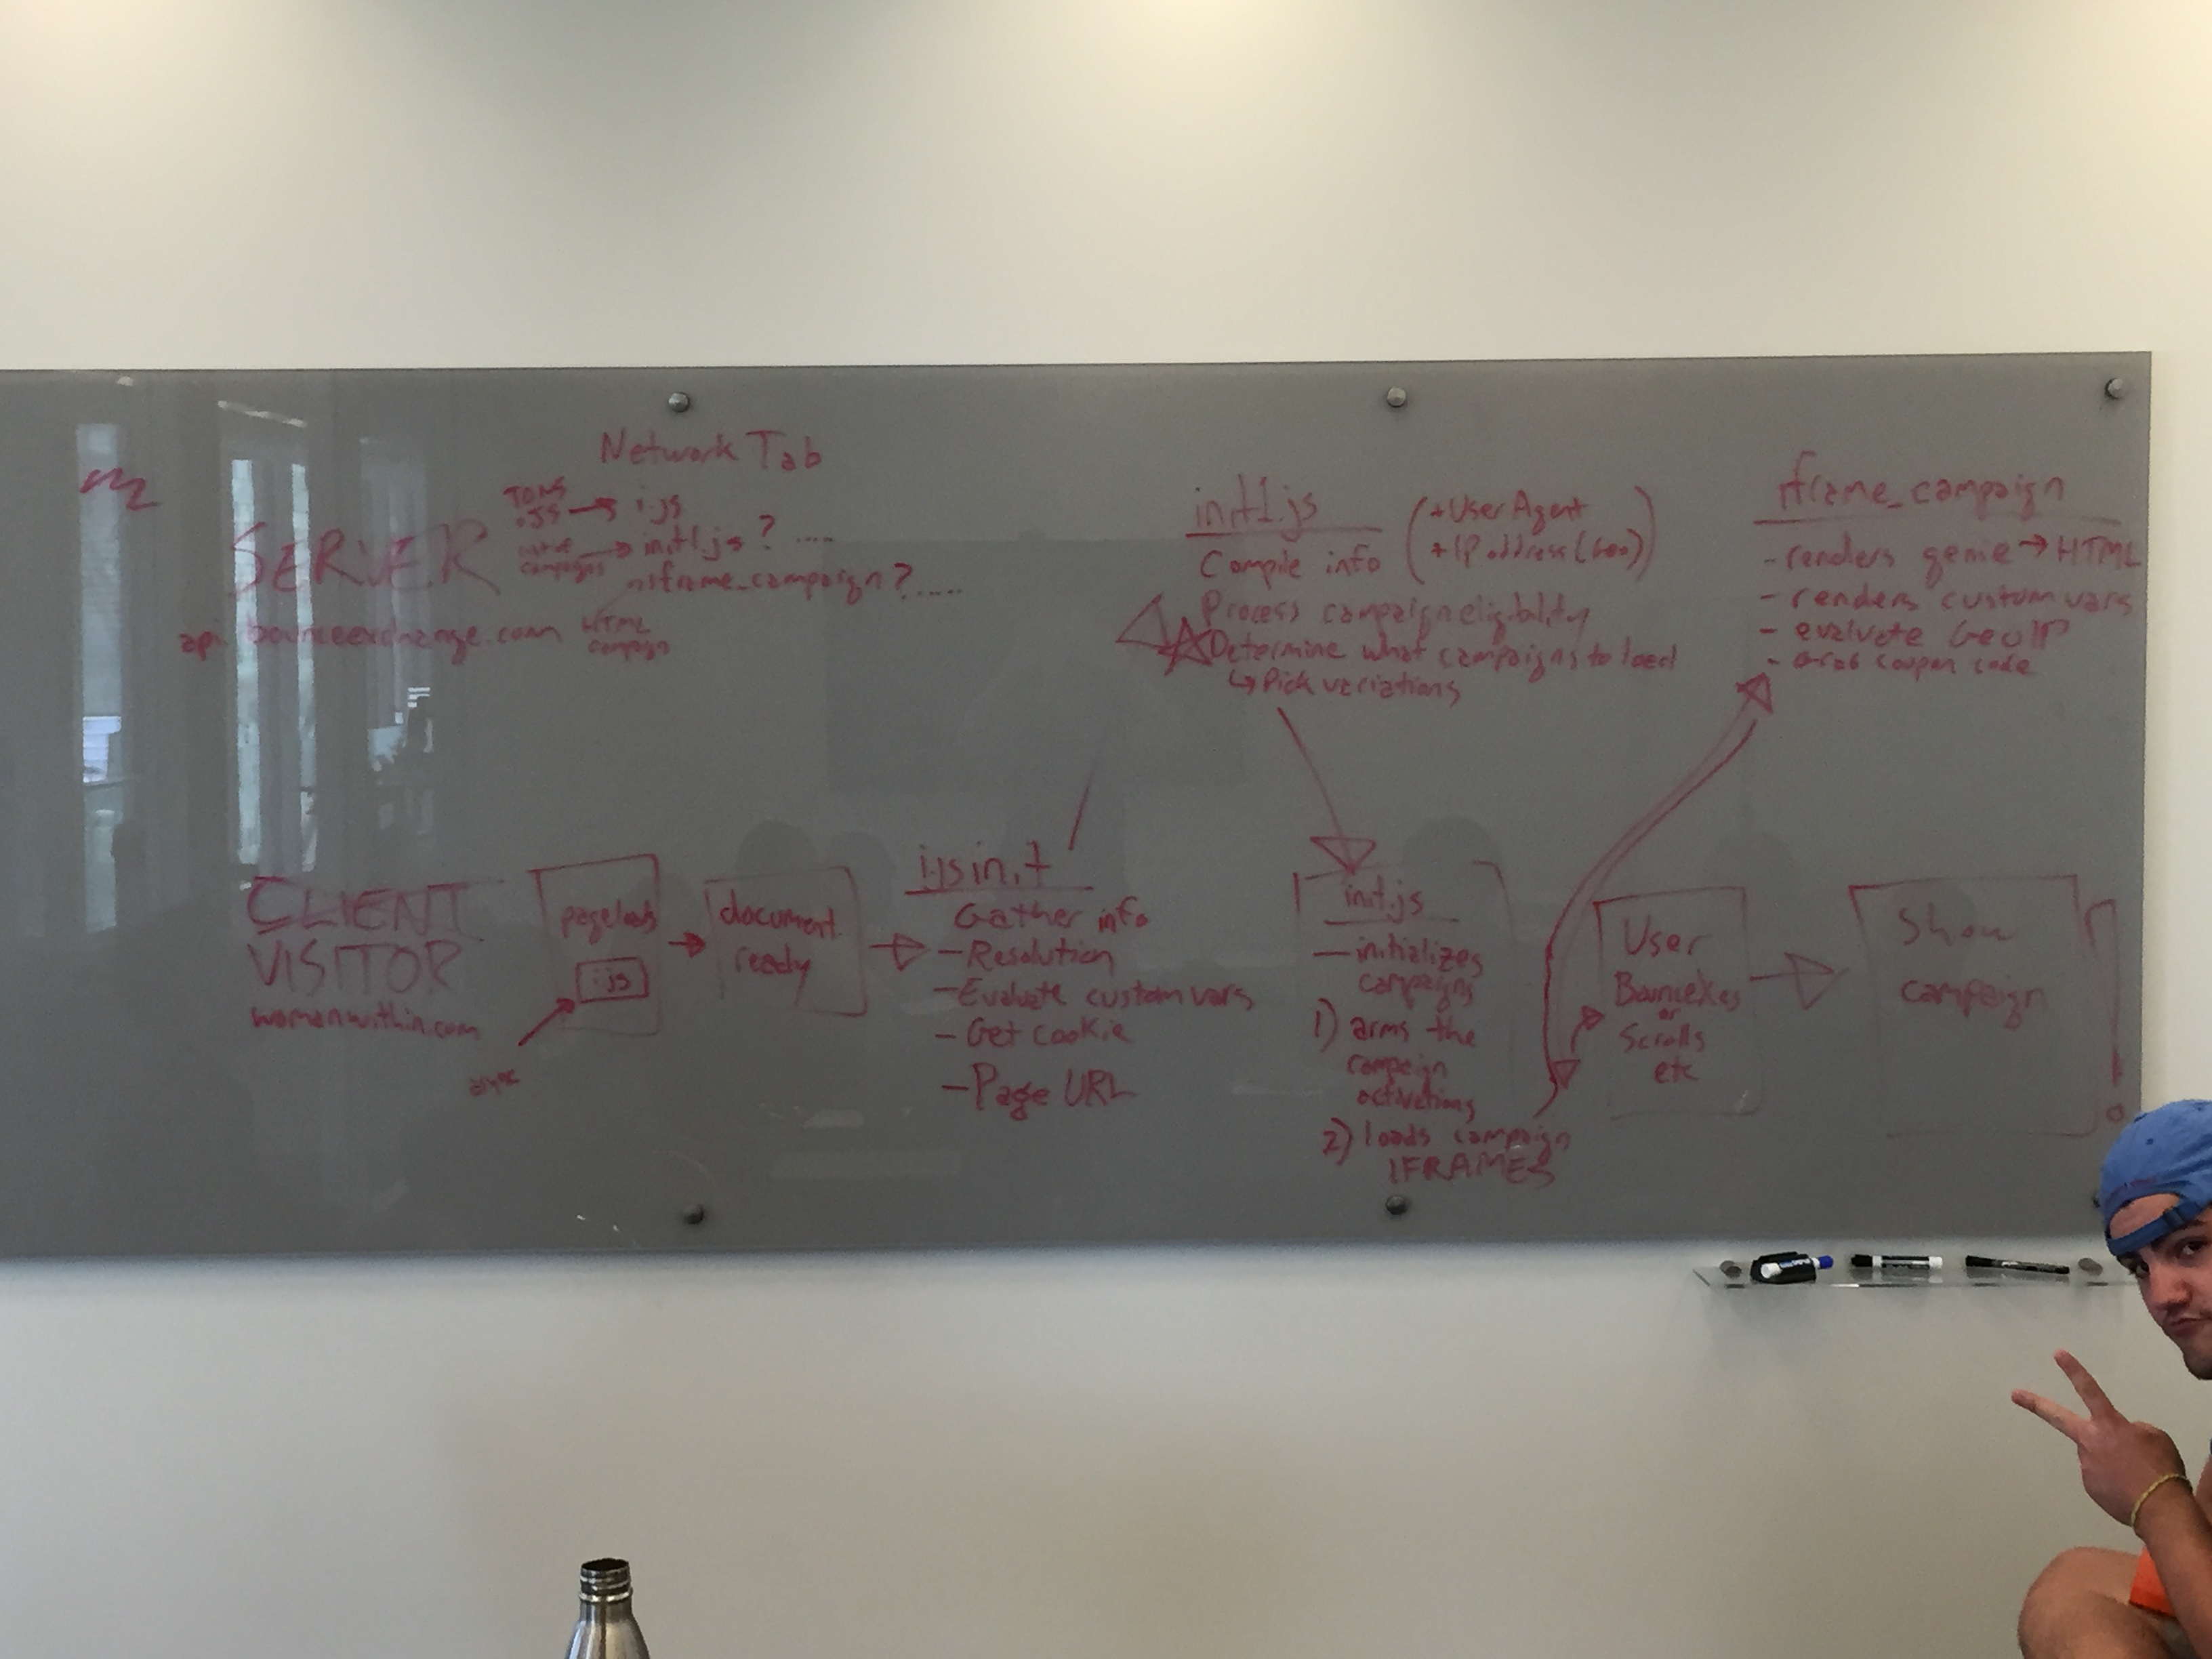 Network Tab
TONS
.JS → i.js
SERVER
list of
campaigns → init1.js? ....
iframe_campaign? .....
api.bounceexchange.com
HTML
campaign
init1.js
(+User Agent
+IP address (Geo))
Compile info
Process campaign eligibility
Determine what campaigns to load
↳ Pick variations
iframe_campaign
- renders genie → HTML
- renders custom vars
- evaluate GeoIP
- Grab coupon code
CLIENT
VISITOR
womanwithin.com
async
pageloads
i.js
document
ready
i.js init
Gather info
- Resolution
- Evaluate custom vars
- Get cookie
- Page URL
init.js
- initializes
campaigns
1) arms the
campaign
activations
2) loads campaign
IFRAMES
User
BounceXes
or
Scrolls
etc
Show
campaign